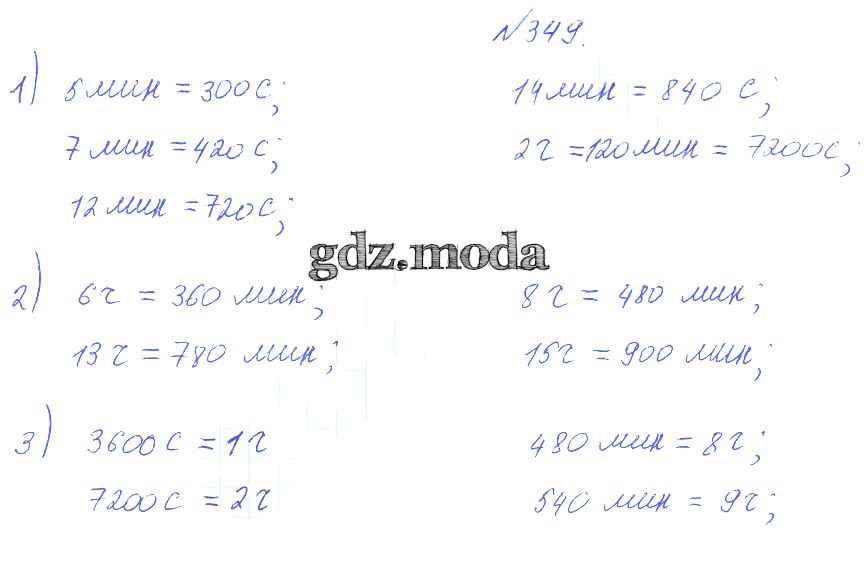 №349.
1) 5 мин = 300 с; 14 мин = 840 с;
7 мин = 420 с; 2 ч = 120 мин = 7200 с;
12 мин = 720 с;
gdz.moda
2) 6 ч = 360 мин; 8 ч = 480 мин;
13 ч = 780 мин; 15 ч = 900 мин;
3) 3600 с = 1 ч 480 мин = 8 ч;
7200 с = 2 ч 540 мин = 9 ч;